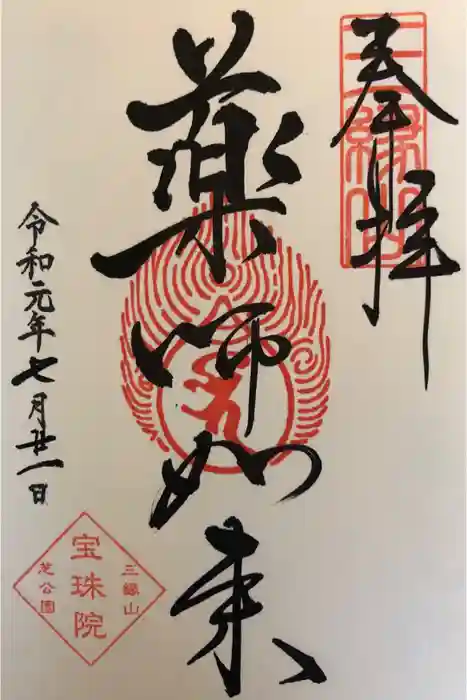 奉拝
三縁山
薬師如来
令和元年七月廿一日
三縁山
宝珠院
芝公園